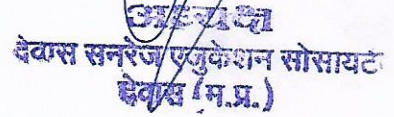 अध्यक्ष
देवास सनरेज एजुकेशन सोसायटी
देवास (म.प्र.)